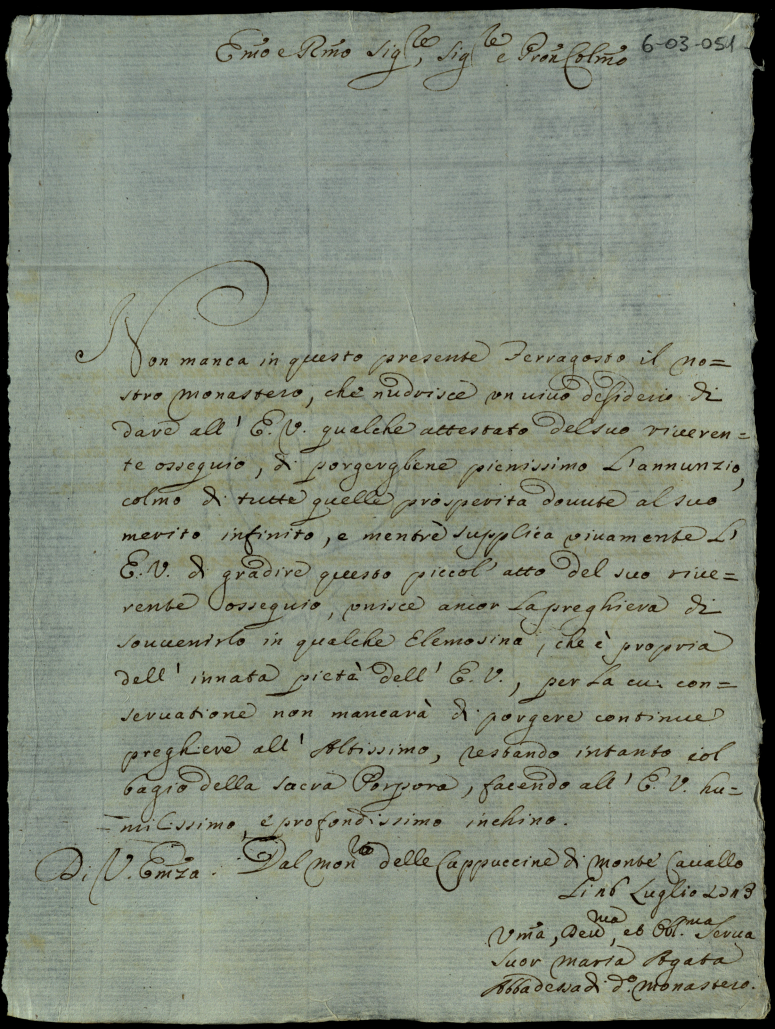 6-03-051
Emo e Rmo Sigre, Sigre e Pron Colmo
Non manca in questo presente Ferragosto il no=
stro monastero, che nudrisce un uiuo desiderio di
dare all' E. V. qualche attestato del suo riueren=
te ossequio, di porgergliene pienissimo L'annunzio,
colmo di tutte quelle prosperita douute al suo
merito infinito, e mentre supplica viuamente L'
E. V. di gradire questo piccol' atto del suo riue=
rente ossequio, unisce ancor La preghiera di
souuenirlo in qualche Elemosina, che è propria
dell' innata pietà dell' E. V., per La cui con=
seruatione non mancarà di porgere continue
preghiere all' Altissimo, restando intanto col
bagio della sacra Porpora, facendo all' E. V. hu=
milissimo, e profondissimo inchino.
Di V. Emza. Dal monro delle Cappuccine di monte Cauallo
Li 26 Luglio
Vma, Deuma, et Obl.ma Serua
Suor maria Agata
Abbadessa di do. monastero.